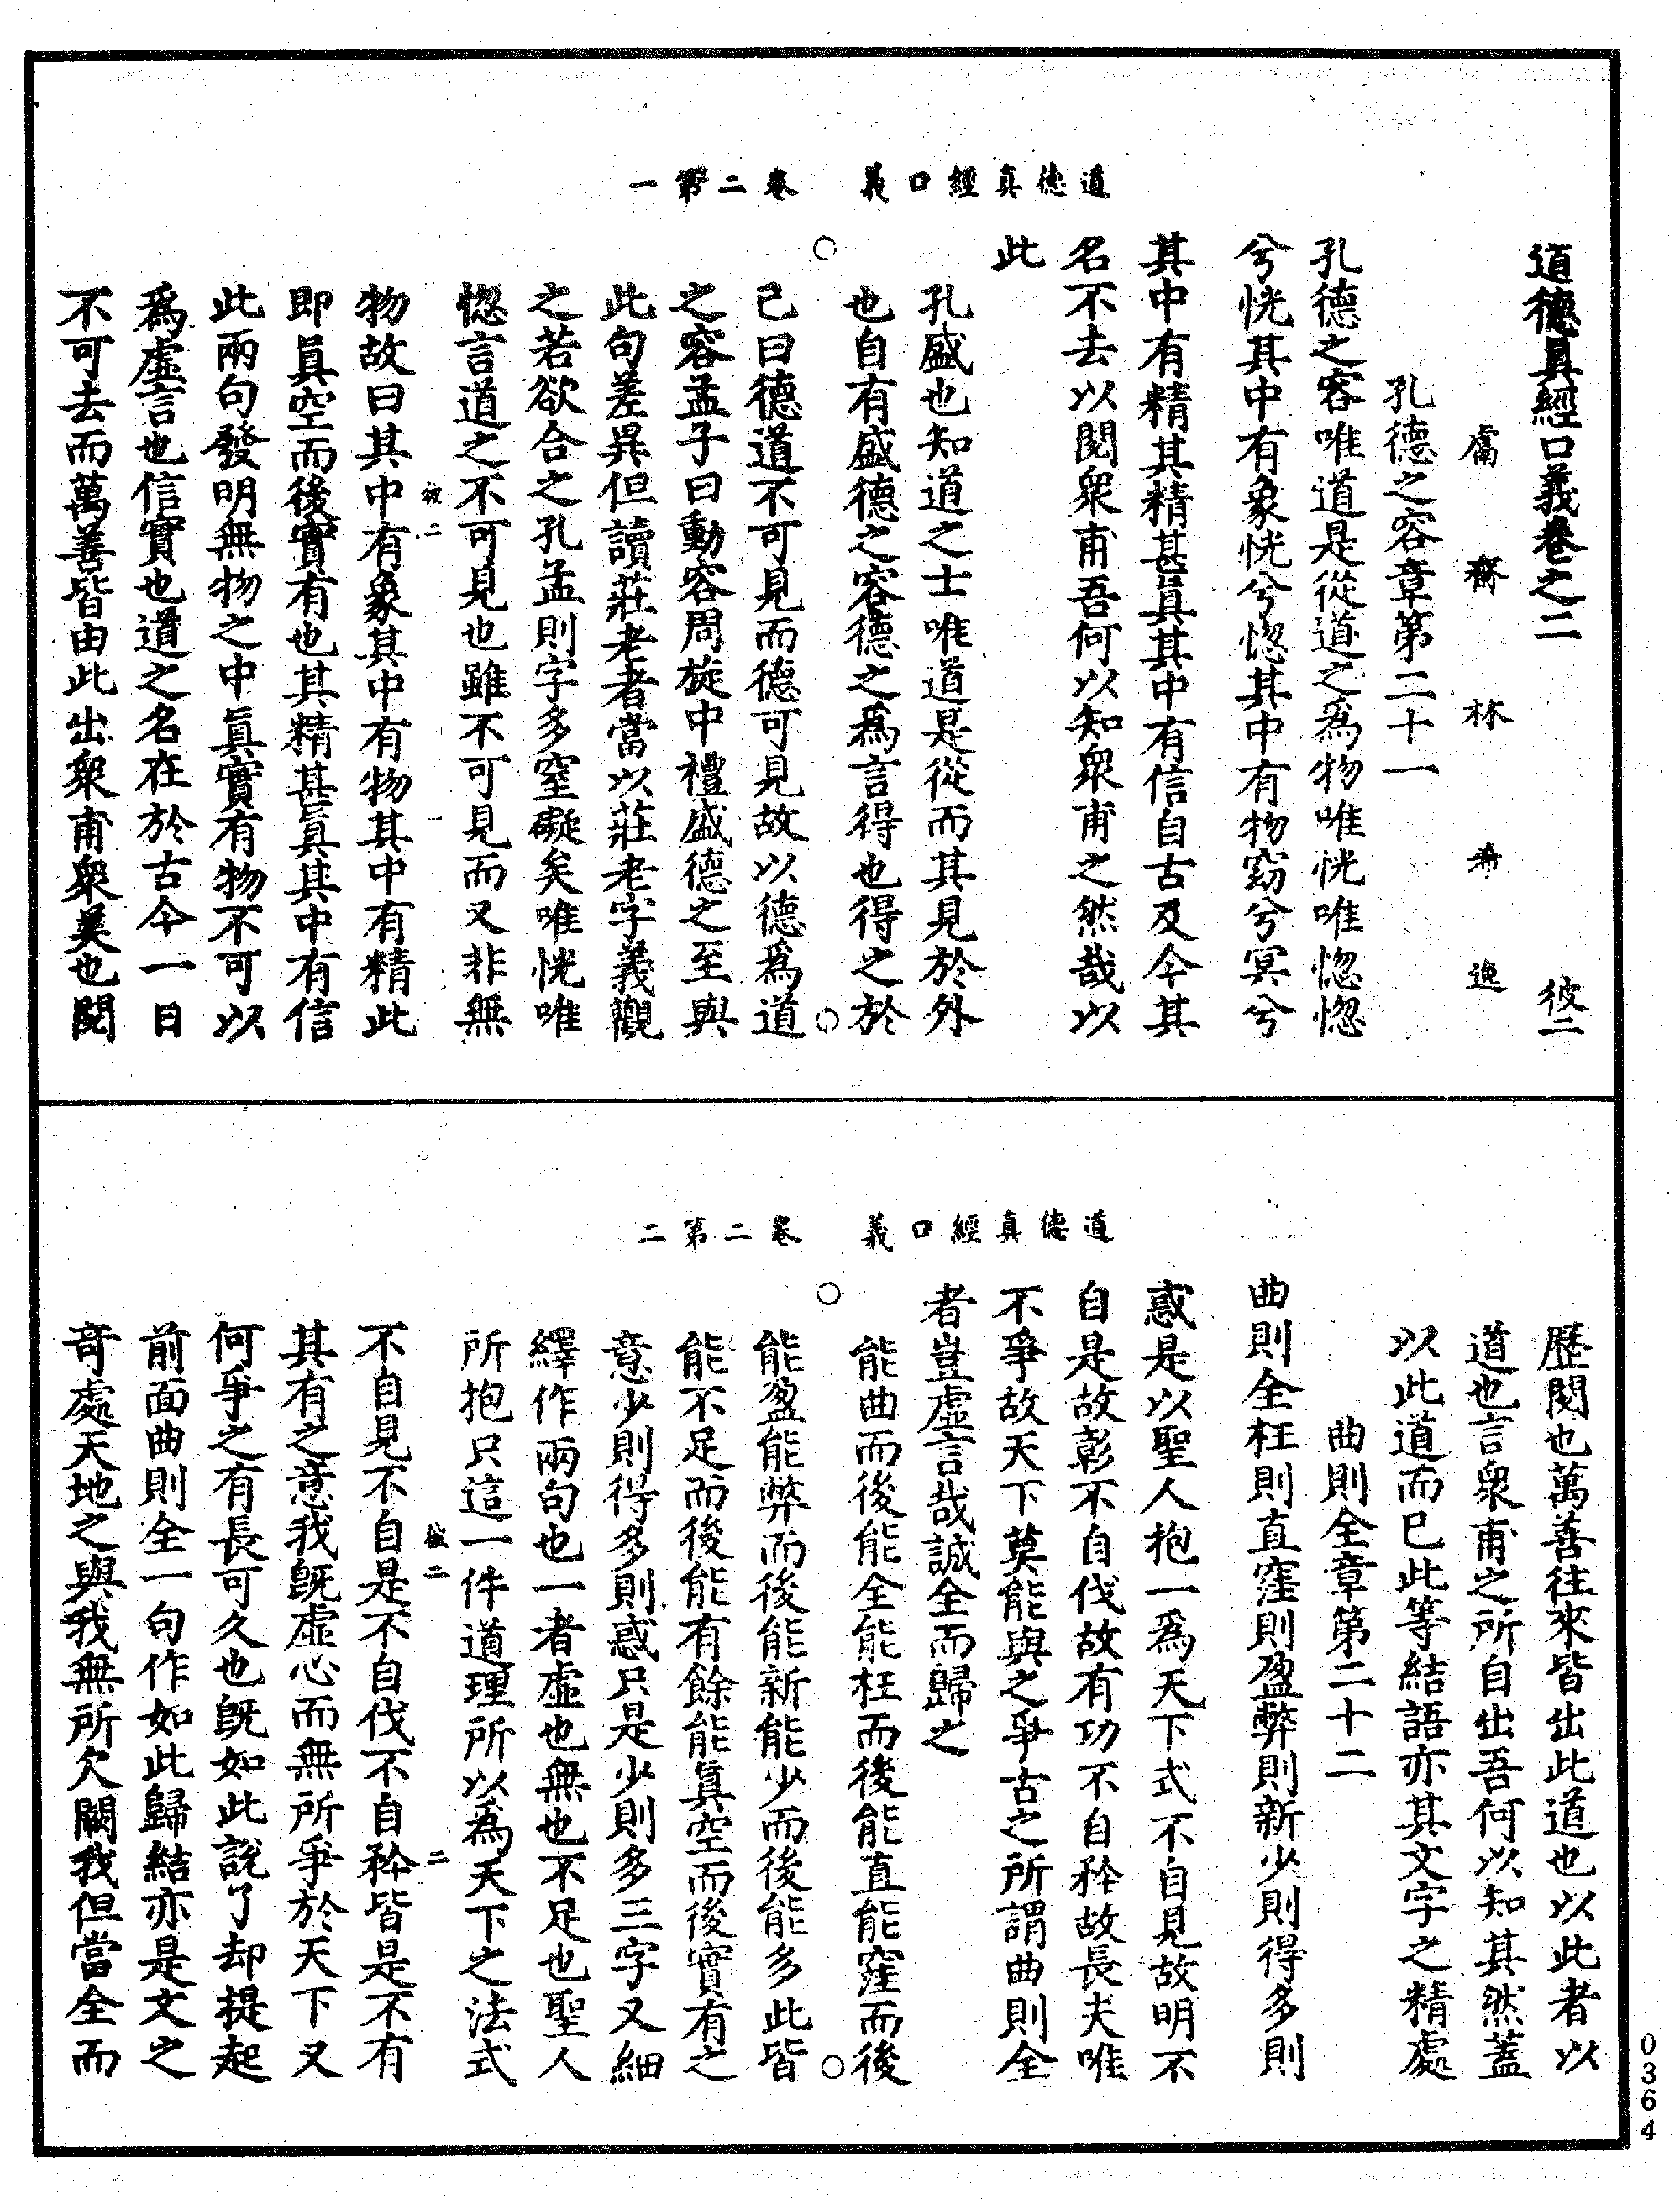 道德真經口義 卷二第一
道德真經口義卷之二 彼二
鬳齋林希逸
孔德之容章第二十一
孔德之容唯道是從道之為物唯恍唯惚惚
兮恍其中有象恍兮惚其中有物窈兮冥兮
其中有精其精甚真其中有信自古及今其
名不去以閱眾甫吾何以知眾甫之然哉以
此
孔盛也知道之士唯道是從而其見於外
也自有盛德之容德之為言得也得之於
己曰德道不可見而德可見故以德為道
之容孟子曰動容周旋中禮盛德之至與
此句差異但讀莊老者當以莊老字義觀
之若欲合之孔孟則字多窒礙矣唯恍唯
惚言道之不可見也雖不可見而又非無
彼二 一
物故曰其中有象其中有物其中有精此
即真空而後實有也其精甚真其中有信
此兩句發明無物之中真實有物不可以
為虛言也信實也道之名在於古今一日
不可去而萬善皆由此出眾甫眾美也閱
道德真經口義 卷二第二
歷閱也萬善往來皆出此道也以此者以
道也言眾甫之所自出吾何以知其然蓋
以此道而已此等結語亦其文字之精處
曲則全章第二十二
曲則全枉則直窪則盈弊則新少則得多則
惑是以聖人抱一為天下式不自見故明不
自是故彰不自伐故有功不自矜故長夫唯
不爭故天下莫能與之爭古之所謂曲則全
者豈虛言哉誠全而歸之
能曲而後能全能枉而後能直能窪而後
能盈能弊而後能新能少而後能多此皆
能不足而後能有餘能真空而後實有之
意少則得多則惑只是少則多三字又細
繹作兩句也一者虛也無也不足也聖人
所抱只這一件道理所以為天下之法式
彼二 二
不自見不自是不自伐不自矜皆是不有
其有之意我既虛心而無所爭於天下又
何爭之有長可久也既如此說了却提起
前面曲則全一句作如此歸結亦是文之
奇處天地之與我無所欠闕我但當全而
0364